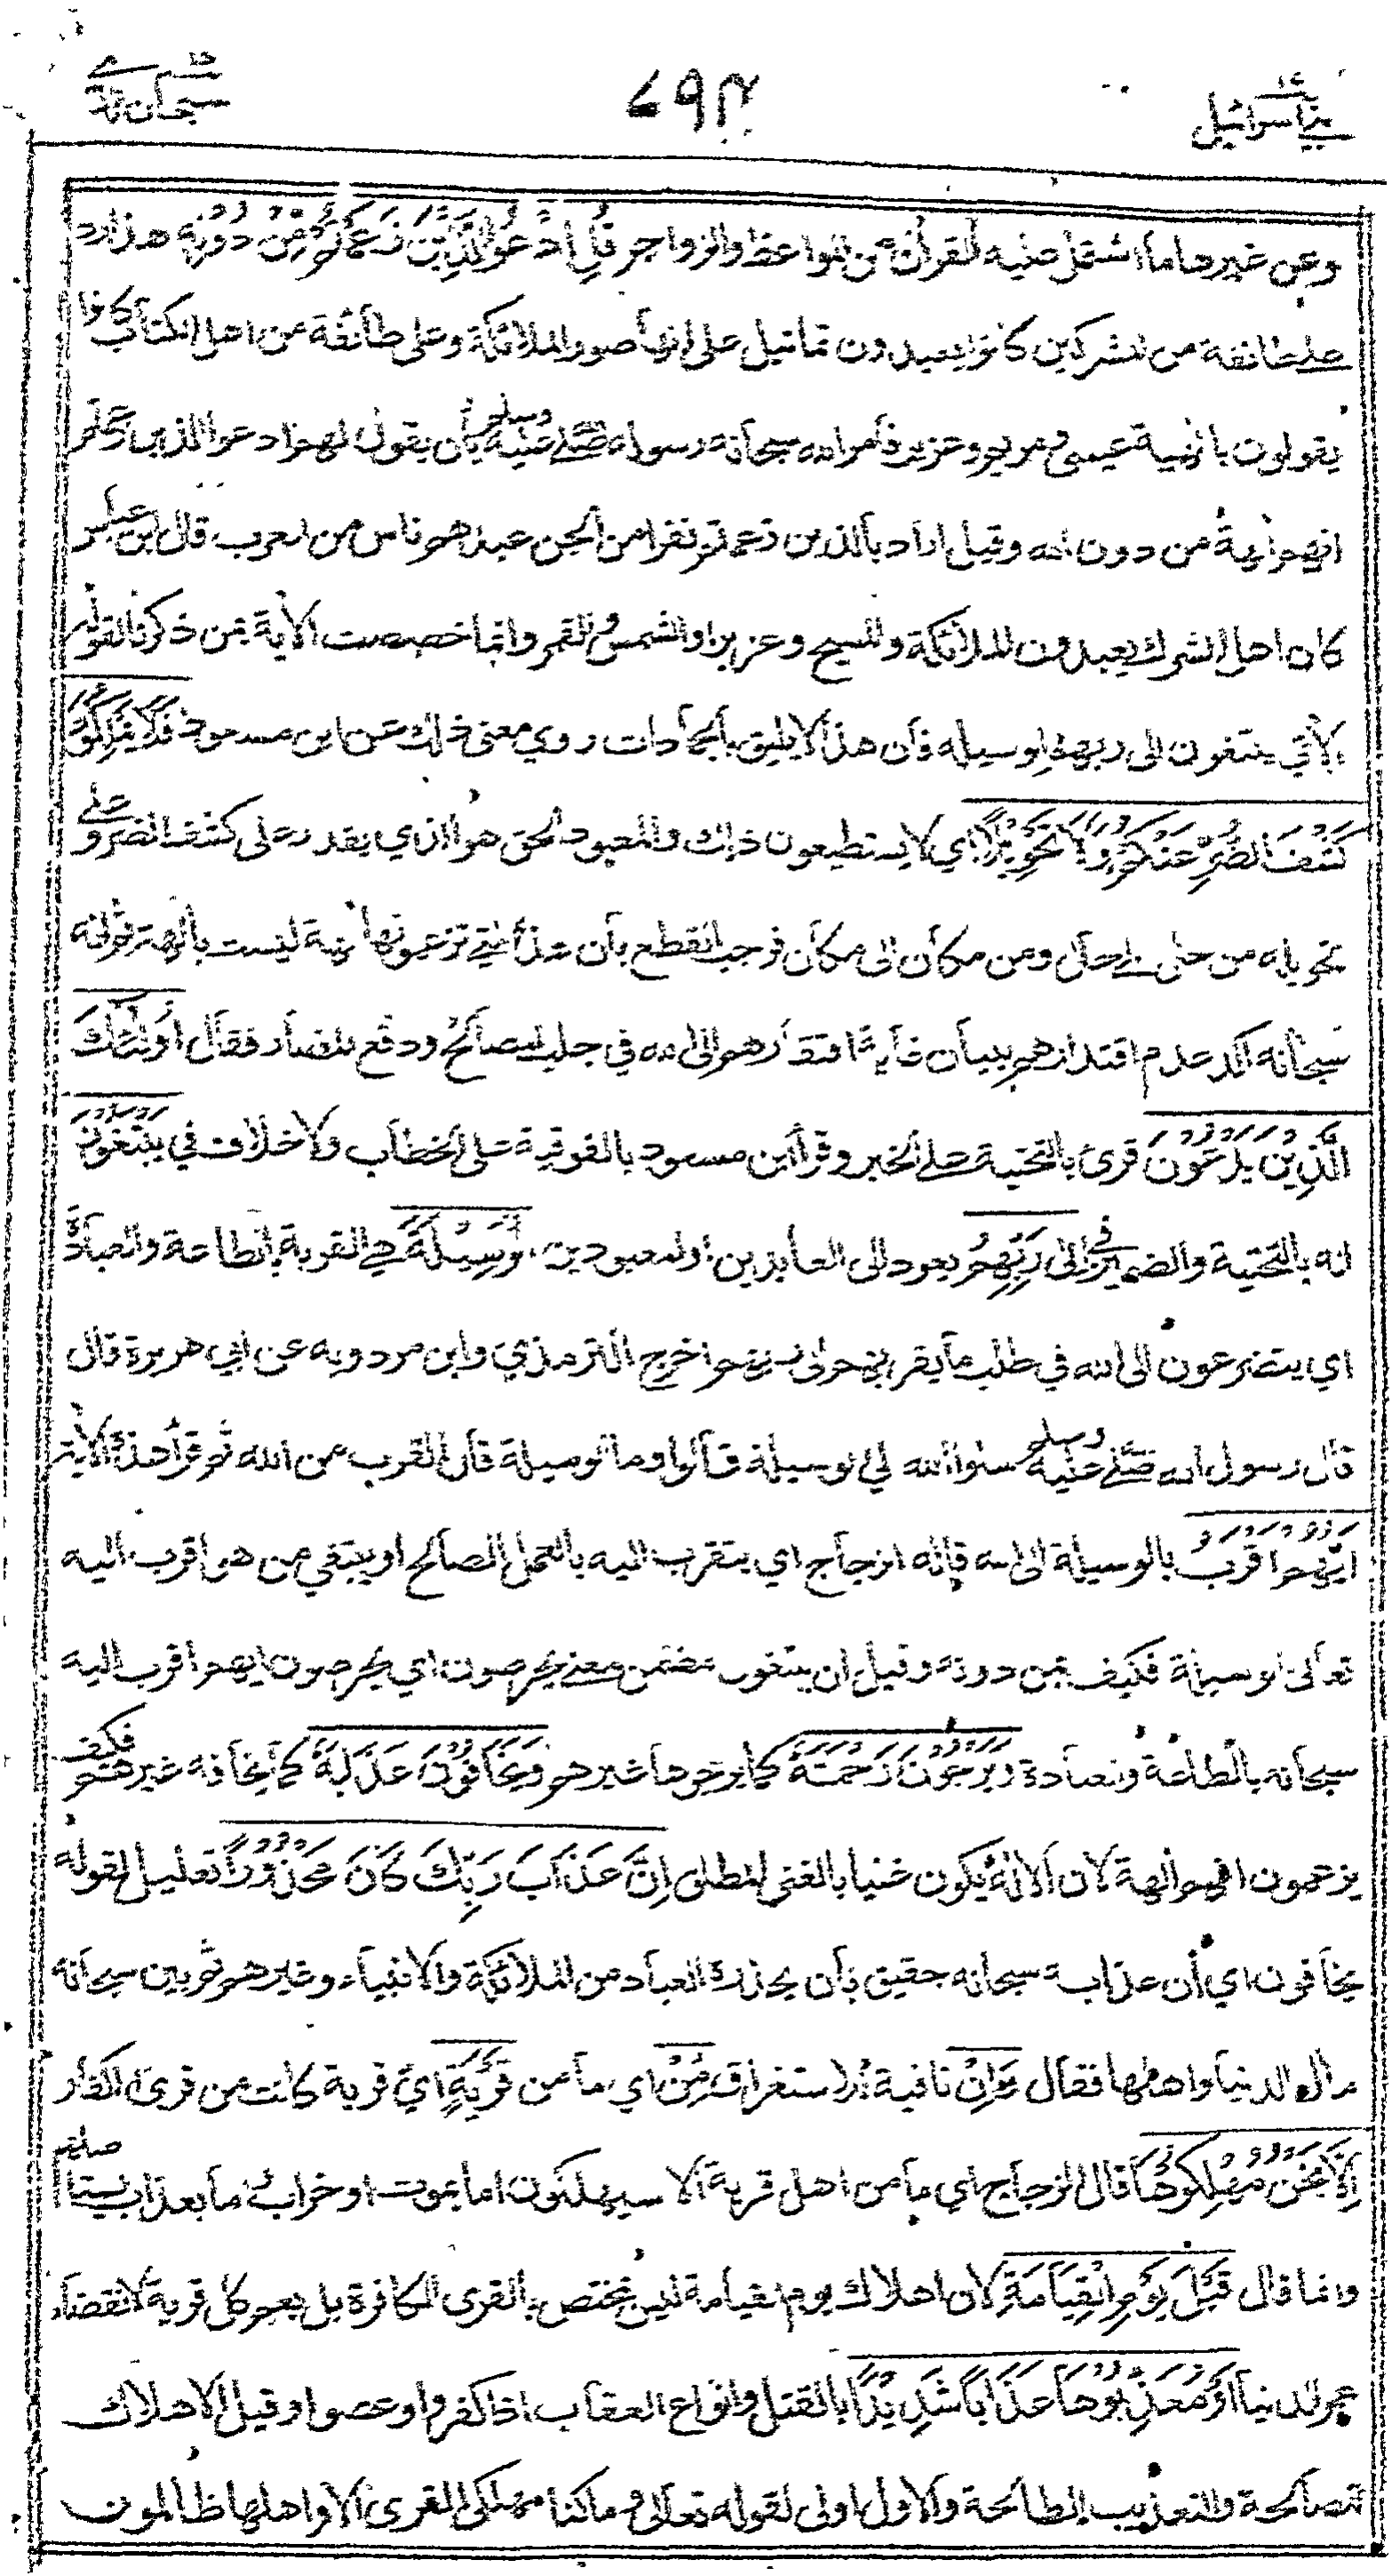 سبحان الذي ١٥
٧٩٣
بني اسرائيل ١٧
وعن غيرها ما اشتمل عليه القرآن من المواعظ والزواجر قُلِ ادْعُوا الَّذِيْنَ زَعَمْتُمْ مِنْ دُوْنِهِ هذا رد
على طائفة من المشركين كانوا يعبدون تماثيل على انها صور الملائكة وعلى طائفة من اهل الكتاب كانوا
يقولون بالهية عيسى ومريم وعزير فامر الله سبحانه رسوله صلى عليه وسلم بان يقول لهم ادعوا الذين زعمتم
انهم الهة من دون الله وقيل اراد بالذين زعمتم نفرا من الجن عبدهم ناس من العرب قال ابن عباس
كان اهل الشرك يعبدون الملائكة والمسيح وعزيرا والشمس والقمر وانما خصصت الآية بمن ذكرنا لقوله
الآتي يبتغون الى ربهم الوسيلة فان هذا لا يليق بالجمادات روي معنى ذلك عن ابن مسعود فَلَا يَمْلِكُوْنَ
كَشْفَ الضُّرِّ عَنْكُمْ وَلَا تَحْوِيْلًا اي لا يستطيعون ذلك والمعبود الحق هو الذي يقدر على كشف الضر وعلى
تحويله من حال الى حال ومن مكان الى مكان فوجب القطع بان هذه التي تزعمونها الهة ليست بالهة ثم انه
سبحانه اكد عدم اقتدارهم ببيان غاية افتقارهم الى الله في جلب المصالح ودفع المضار فقال أُولٰئِكَ
الَّذِيْنَ يَدْعُوْنَ قرئ بالتحتية على الخبر وقرأ ابن مسعود بالفوقية على الخطاب ولا خلاف في يَبْتَغُوْنَ
انه بالتحتية والضمير في اِلٰى رَبِّهِمُ يعود الى العابدين او المعبودين الْوَسِيْلَةَ هي القربة بالطاعة والعبادة
اي يتضرعون الى الله في طلب ما يقربهم الى ربهم واخرج الترمذي وابن مردويه عن ابي هريرة قال
قال رسول الله صلى عليه وسلم سلوا الله لي الوسيلة قالوا وما الوسيلة قال القرب من الله ثم قرأ هذه الآية
اَيُّهُمْ اَقْرَبُ بالوسيلة الى الله قاله الزجاج اي يتقرب اليه بالعمل الصالح او يبتغي من هو اقرب اليه
تعالى الوسيلة فكيف بمن دونه وقيل ان يبتغون مضمن معنى يحرصون اي يحرصون ايهم اقرب اليه
سبحانه بالطاعة والعبادة وَيَرْجُوْنَ رَحْمَتَهُ كما يرجوها غيرهم وَيَخَافُوْنَ عَذَابَهُ كما يخافه غيرهم فكيف
يزعمون انهم الهة لان الاله يكون غنيا بالغنى المطلق اِنَّ عَذَابَ رَبِّكَ كَانَ مَحْذُوْرًا تعليل لقوله
يخافون اي ان عذابه سبحانه حقيق بان يحذره العباد من الملائكة والانبياء وغيرهم ثم بين سبحانه
مآل الدنيا واهلها فقال وَاِنْ نافية للاستغراق مِنْ اي ما من قَرْيَةٍ اي قرية كانت من قرى الكفار
اِلَّا نَحْنُ مُهْلِكُوْهَا قال الزجاج اي ما من اهل قرية الا سيهلكون اما بموت او خراب واما بعذاب يستأصلهم
وانما قال قَبْلَ يَوْمِ الْقِيَامَةِ لان اهلاك يوم القيامة ليس يختص بالقرى الكافرة بل يعم كل قرية لانقضاء
عمر الدنيا اَوْ مُعَذِّبُوْهَا عَذَابًا شَدِيْدًا بالقتل وانواع العقاب اذا كفروا وعصوا وقيل الاهلاك
للصالحة والتعذيب للطالحة والاول اولى لقوله تعالى وما كنا مهلكي القرى الا واهلها ظالمون